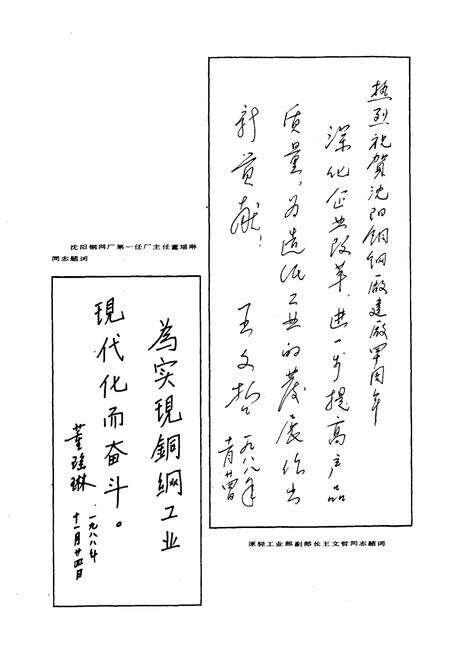 热烈祝賀沈阳銅網厰建厰卅周年
深化企业改革，进一步提高产品
质量，为造纸工业的發展作出
新贡献！
王文哲 一九八八年
十一月廿四日
原轻工业部副部长王文哲同志题词
沈阳铜网厂第一任厂主任董瑶琳
同志题词
為实現銅網工业
現代化而奋斗。
董瑶琳
一九八八年
十一月廿四日